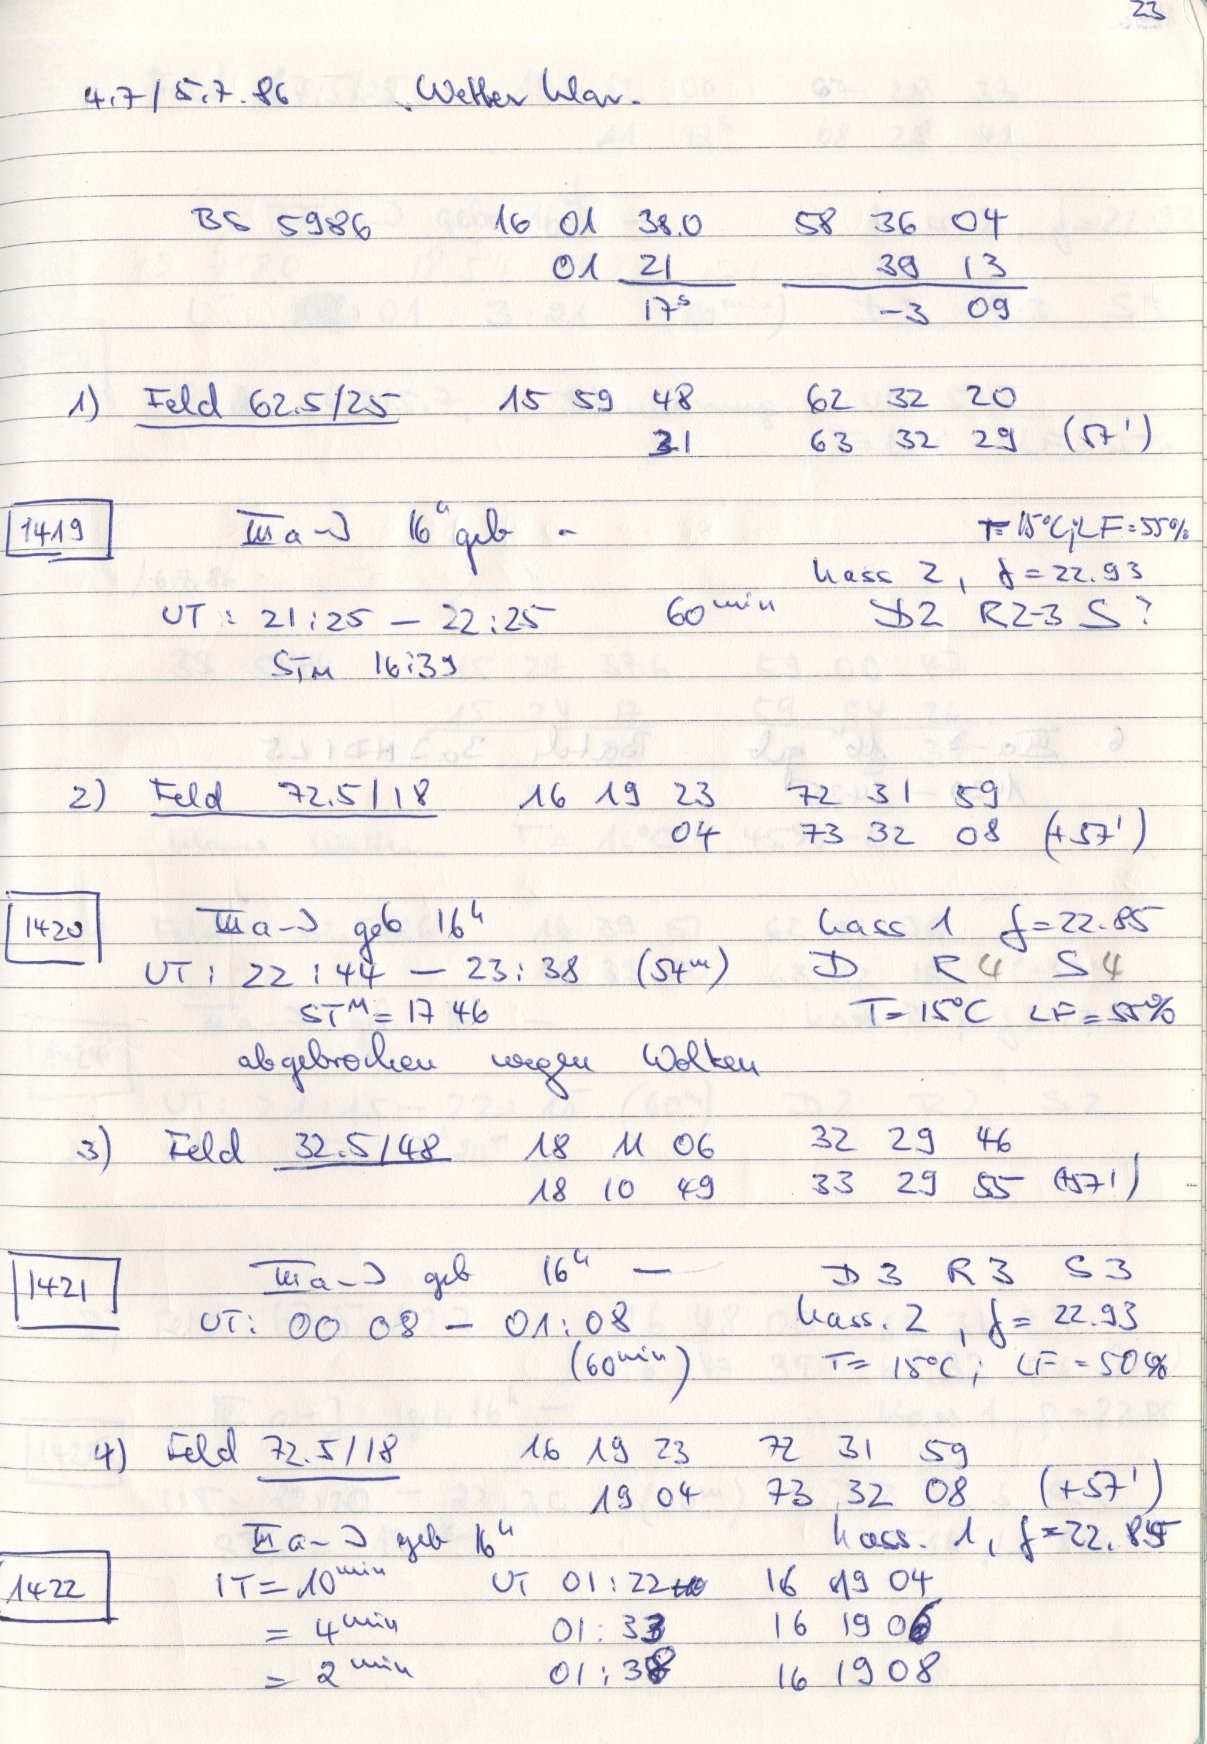 23
4.7/5.7.86 Wetter klar.
BS 5986 16 01 38.0 58 36 04
01 21 39 13
17ˢ -3 09
1) Feld 62.5/25 15 59 48 62 32 20
31 63 32 29 (57')
1419 IIIa-J 16ʰ geb - T=15°C; LF=55%
Kass 2, f=22.93
UT: 21:25 - 22:25 60ᵐⁱⁿ D2 R2-3 S?
STM 16:39
2) Feld 72.5/18 16 19 23 72 31 59
04 73 32 08 (+57')
1420 IIIa-J geb 16ʰ Kass 1 f=22.85
UT: 22:44 - 23:38 (54ᵐ) D R4 S4
STᴹ = 17 46 T=15°C LF=55%
abgebrochen wegen Wolken
3) Feld 32.5/48 18 11 06 32 29 46
18 10 49 33 29 55 (+57')
1421 IIIa-J geb 16ʰ — D3 R3 S3
UT: 00 08 - 01:08 Kass. 2, f=22.93
(60ᵐⁱⁿ) T=15°C; LF=50%
4) Feld 72.5/18 16 19 23 72 31 59
19 04 73 32 08 (+57')
IIIa-J geb 16ʰ Kass. 1, f=22.85
1422 IT=10ᵐⁱⁿ UT 01:22 16 19 04
= 4ᵐⁱⁿ 01:33 16 19 06
= 2ᵐⁱⁿ 01:38 16 19 08